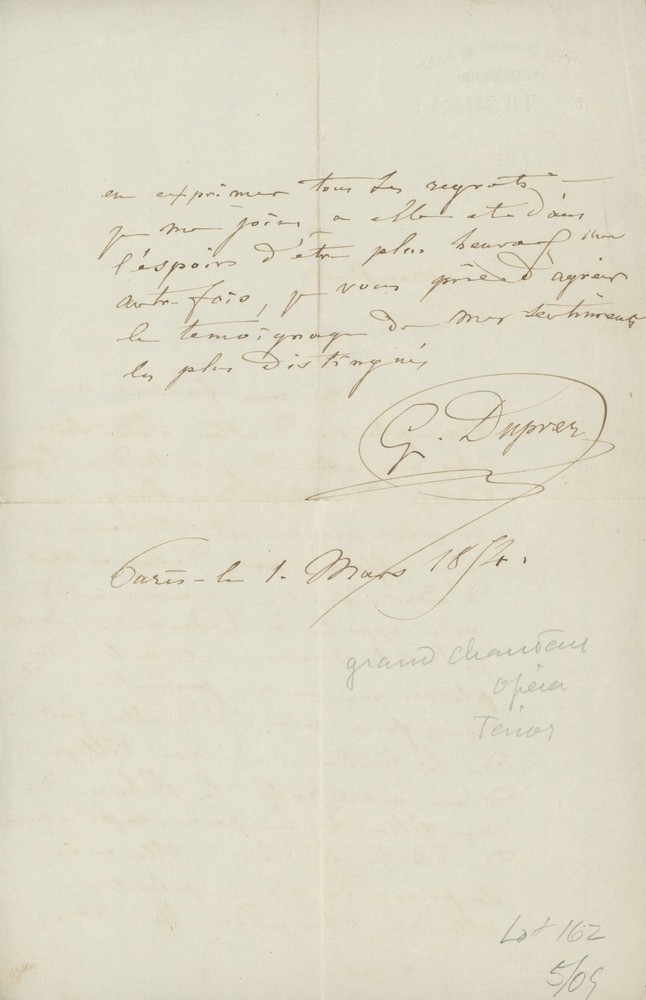 en exprimer tous ses regrets –
je me joins a elle et dans
l'espoir d'être plus heureux une
autre fois, je vous prie d'agréer
le temoignage de mes sentiments
les plus distingués
G. Duprez
Paris – le 1. Mars 1854.
grand chanteur
opéra
Tenor
Lot 162
5/09